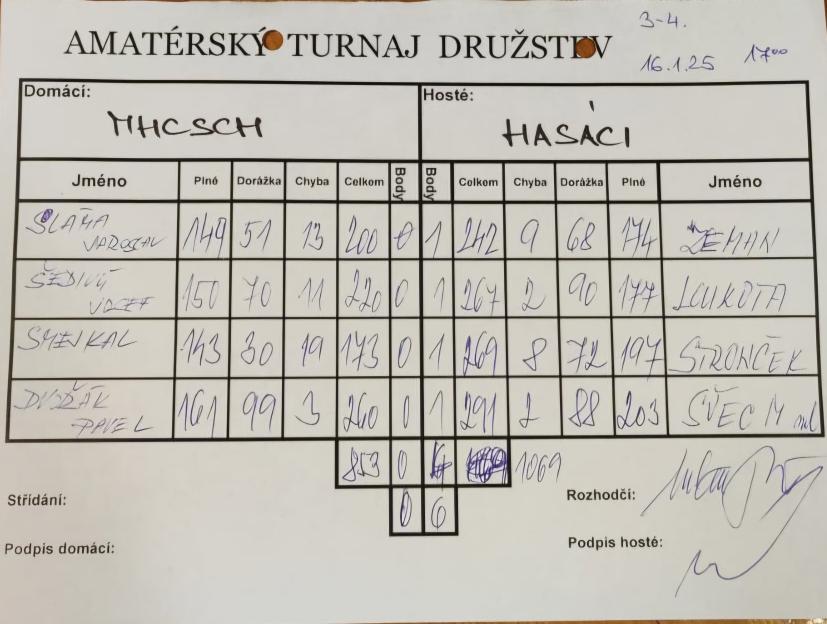 3-4.
AMATÉRSKÝ TURNAJ DRUŽSTEV
16.1.25 17⁰⁰
Domácí: Hosté:
MHCSCH HASÁCI
Jméno Plné Dorážka Chyba Celkem Body Body Celkem Chyba Dorážka Plné Jméno
SLÁMA JAROSLAV 149 51 13 200 0 1 242 9 68 174 ZEMAN
ŠEDIVÝ JOSEF 150 70 11 220 0 1 267 2 90 177 LOUKOTA
SMEJKAL 143 30 19 173 0 1 269 8 72 197 STRONČEK
DVOŘÁK PAVEL 161 99 3 260 0 1 291 2 88 203 ŠVEC M ml
853 0 1069
0 6
Střídání: Rozhodčí:
Podpis domácí: Podpis hosté: